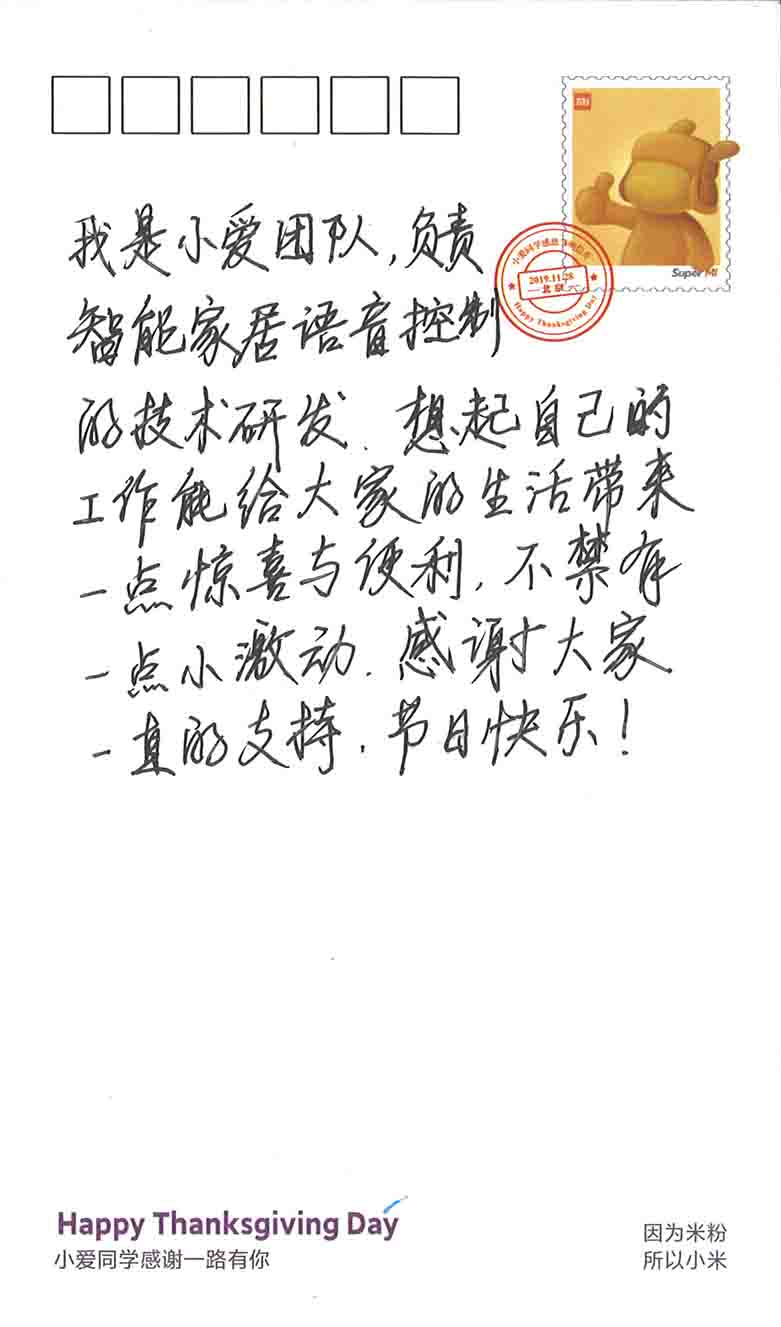 MI
Super MI
小爱同学感恩
2019.11.28
北京
Happy Thanksgiving Day
我是小爱团队,负责
智能家居语音控制
的技术研发.想起自己的
工作能给大家的生活带来
一点惊喜与便利,不禁有
一点小激动.感谢大家
一直的支持,节日快乐!
Happy Thanksgiving Day
小爱同学感谢一路有你
因为米粉
所以小米